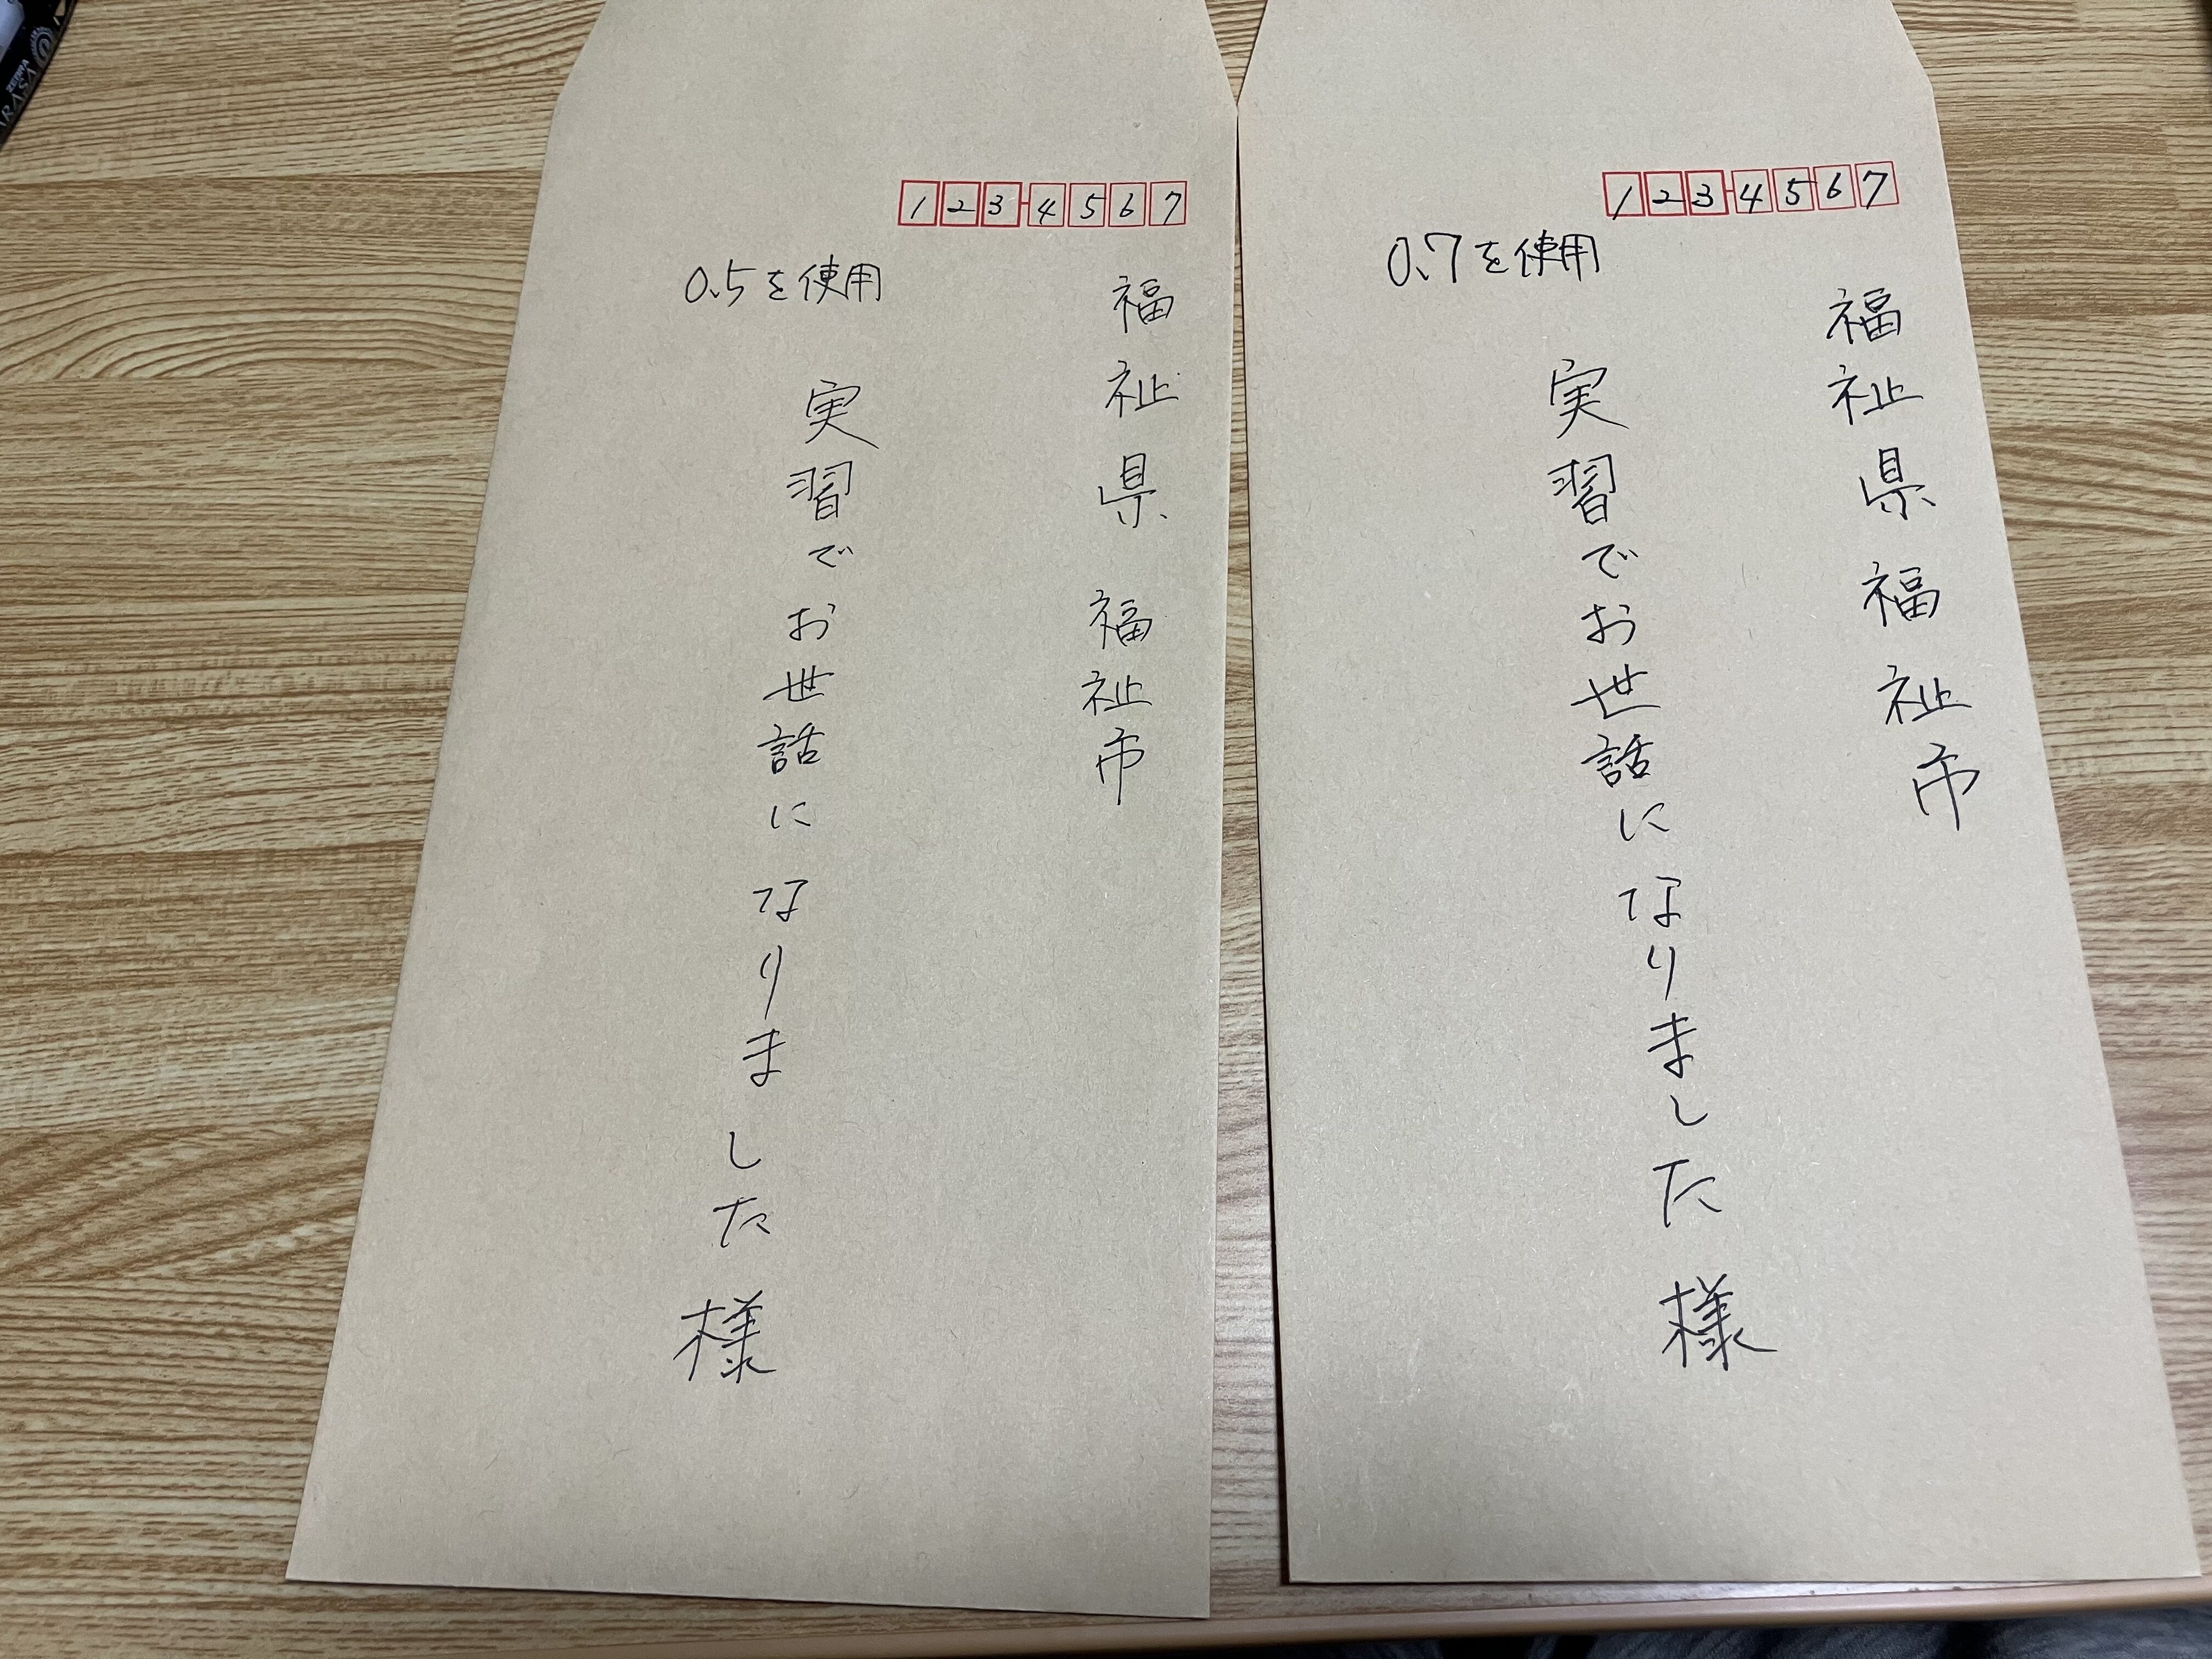 1234567
0.5を使用
福祉県 福祉市
実習でお世話になりました 様
1234567
0.7を使用
福祉県福祉市
実習でお世話になりました 様
ZEBRA